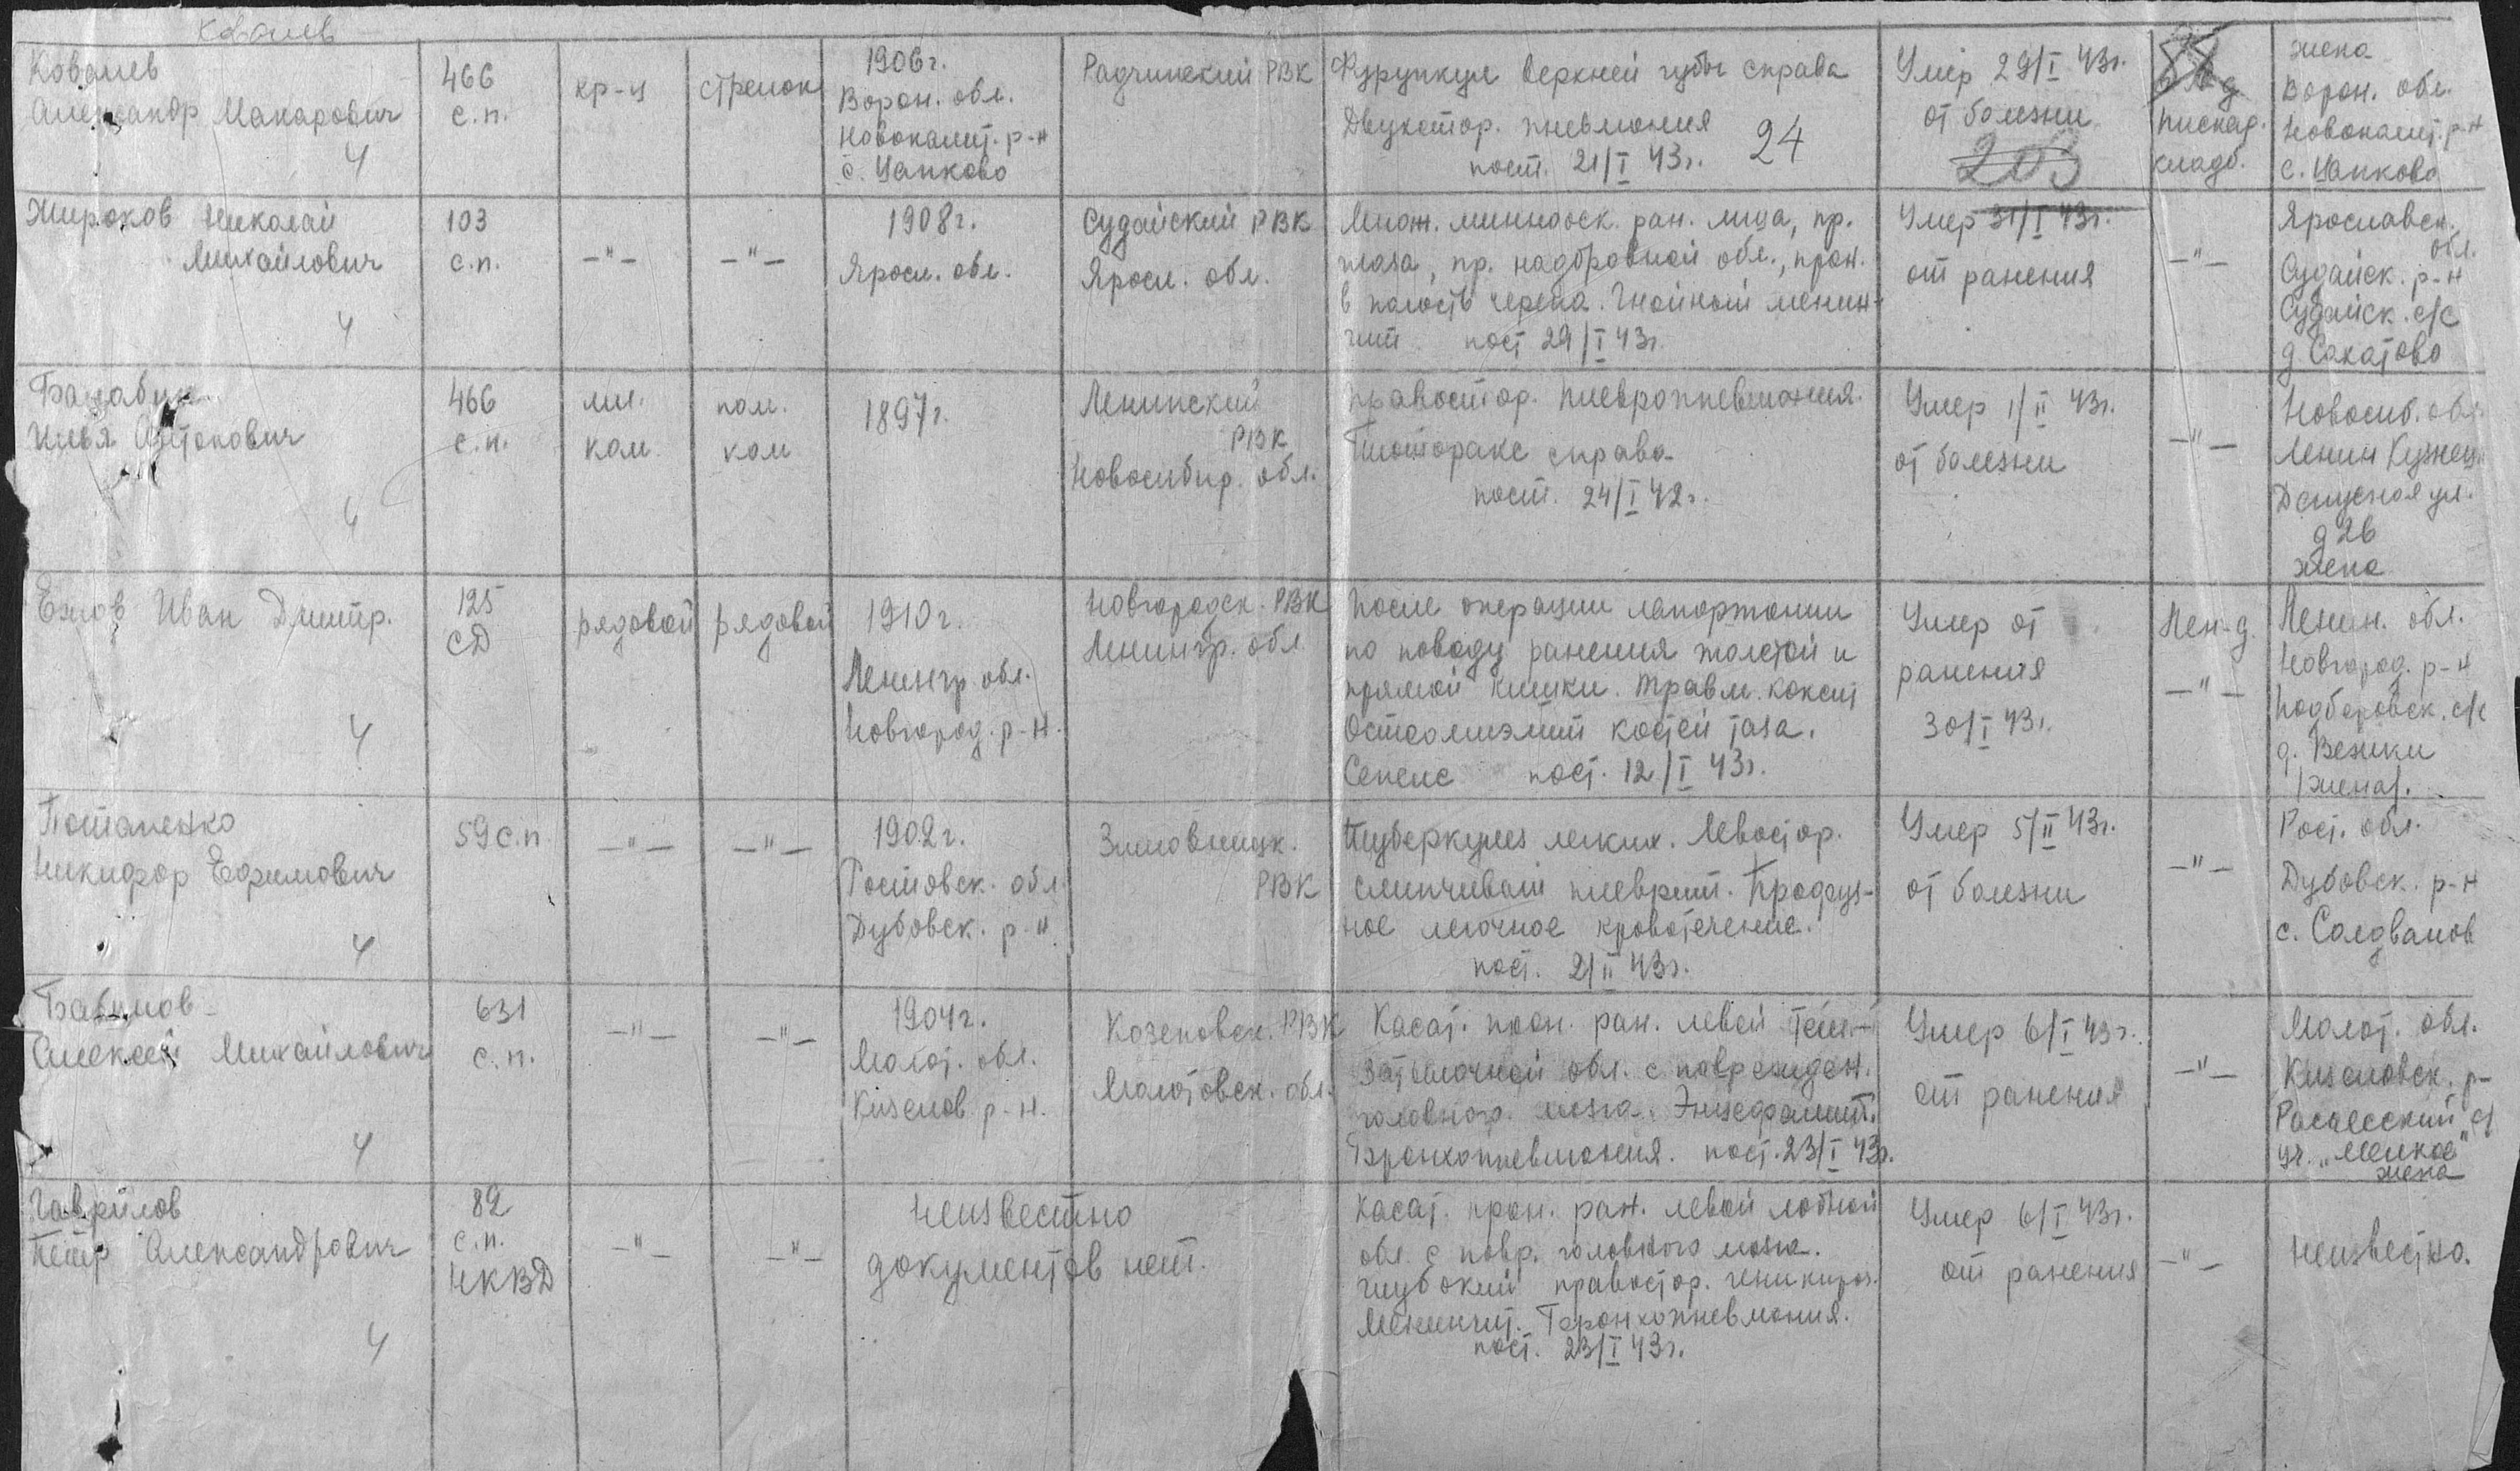 Ковалев
Ковалев
Александр Макарович
Ч
466
с.п.
кр-ц
стрелок
1906г.
Ворон. обл.
Новокалит. р-н
с. Цапково
Радчинский РВК
Фурункул верхней губы справа
Двухстор. пневмония
пост. 21/I 43г.
24
Умер 29/I 43г.
от болезни
203
Пискар.
кладб.
жена
Ворон. обл.
Новокалит. р-н
с. Цапково
Жироков Николай
Михайлович
Ч
103
с.п.
—"—
—"—
1908г.
Яросл. обл.
Судайский РВК
Яросл. обл.
Множ. миннооск. ран. лица, пр.
глаза, пр. надбровной обл., прон.
в полость черепа. Гнойный менин-
гит пост 29/I 43г.
Умер 31/I 43г.
от ранения
—"—
Ярославск.
обл.
Судайск. р-н
Судайск. с/с
д. Сакатово
Илья Антонович
Ч
466
с.п.
мл.
ком.
пом.
ком
1897г.
Ленинский
РВК
Новосибир. обл.
Правостор. плевропневмония.
Пиоторакс справа
пост. 24/I 42г.
Умер 1/II 43г.
от болезни
—"—
Новосиб. обл.
Ленин Кузнец.
ул.
д 26
жена
Ежов Иван Дмитр.
Ч
125
СД
рядовой
рядовой
1910г.
Ленингр. обл.
Новгород. р-н.
Новгородск. РВК
Ленингр. обл
После операции лапортомии
по поводу ранения толстой и
прямой кишки. Травм. коксит
Остеомиэлит костей таза.
Сепсис пост. 12/I 43г.
Умер от
ранения
30/I 43г.
Лен-д.
—"—
Ленин. обл.
Новгород. р-н
Подберовск. с/с
д. Вежики
/жена/.
Потапенко
Никифор Ефимович
Ч
59 с.п.
—"—
—"—
1902г.
Ростовск. обл
Дубовск. р-н.
Зимовницк.
РВК
Туберкулез легких. Левостор.
слипчивый плеврит. Профуз-
ное легочное кровотечение.
пост. 2/II 43г.
Умер 5/II 43г.
от болезни
—"—
Рост. обл.
Дубовск. р-н
с.
Бабинов
Алексей Михайлович
Ч
631
с.п.
—"—
—"—
1904г.
Молот. обл.
Кизелов. р-н.
Козеловск. РВК
Молотовск. обл.
Касат. прон. ран. левой тем.-
затылочной обл. с поврежден.
головног. мозга. Энцефалит.
Бронхопневмония. пост. 23/I 43г.
Умер 6/I 43г.
от ранения
—"—
Молот. обл.
Кизеловск. р-
жена
Гаврилов
Петр Александрович
Ч
82
с.п.
НКВД
—"—
—"—
Неизвестно
документов нет.
Касат. прон. ран. левой лобной
обл. с повр. головного мозга.
Глубокий правостор. гемипарез.
Менингит. Бронхопневмония.
пост. 23/I 43г.
Умер 6/I 43г.
от ранения
—"—
Неизвестно.